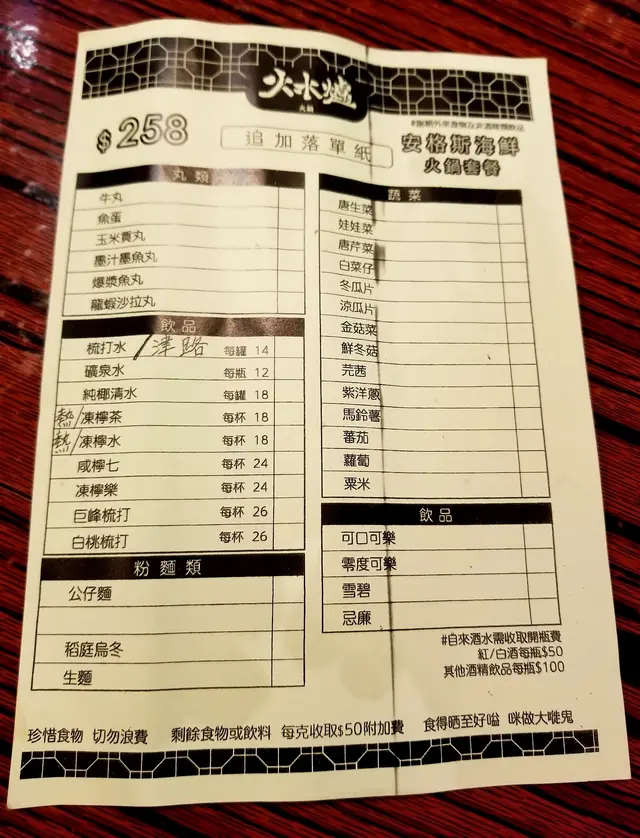 火水煌
火鍋
$258
追加落單紙
#謝絕外來食物及非酒精類飲品
安格斯海鮮
火鍋套餐
丸類
牛丸
魚蛋
玉米貢丸
墨汁墨魚丸
爆漿魚丸
龍蝦沙拉丸
飲品
梳打水/津路 每罐 14
礦泉水 每瓶 12
純椰清水 每罐 18
熱/凍檸茶 每杯 18
熱/凍檸水 每杯 18
咸檸七 每杯 24
凍檸樂 每杯 24
巨峰梳打 每杯 26
白桃梳打 每杯 26
粉麵類
公仔麵
稻庭烏冬
生麵
蔬菜
唐生菜
娃娃菜
唐芹菜
白菜仔
冬瓜片
涼瓜片
金菇菜
鮮冬菇
芫茜
紫洋蔥
馬鈴薯
蕃茄
蘿蔔
粟米
飲品
可口可樂
零度可樂
雪碧
忌廉
#自來酒水需收取開瓶費
紅/白酒每瓶$50
其他酒精飲品每瓶$100
珍惜食物 切勿浪費 剩餘食物或飲料 每克收取$50附加費 食得晒至好嗌 咪做大嘥鬼